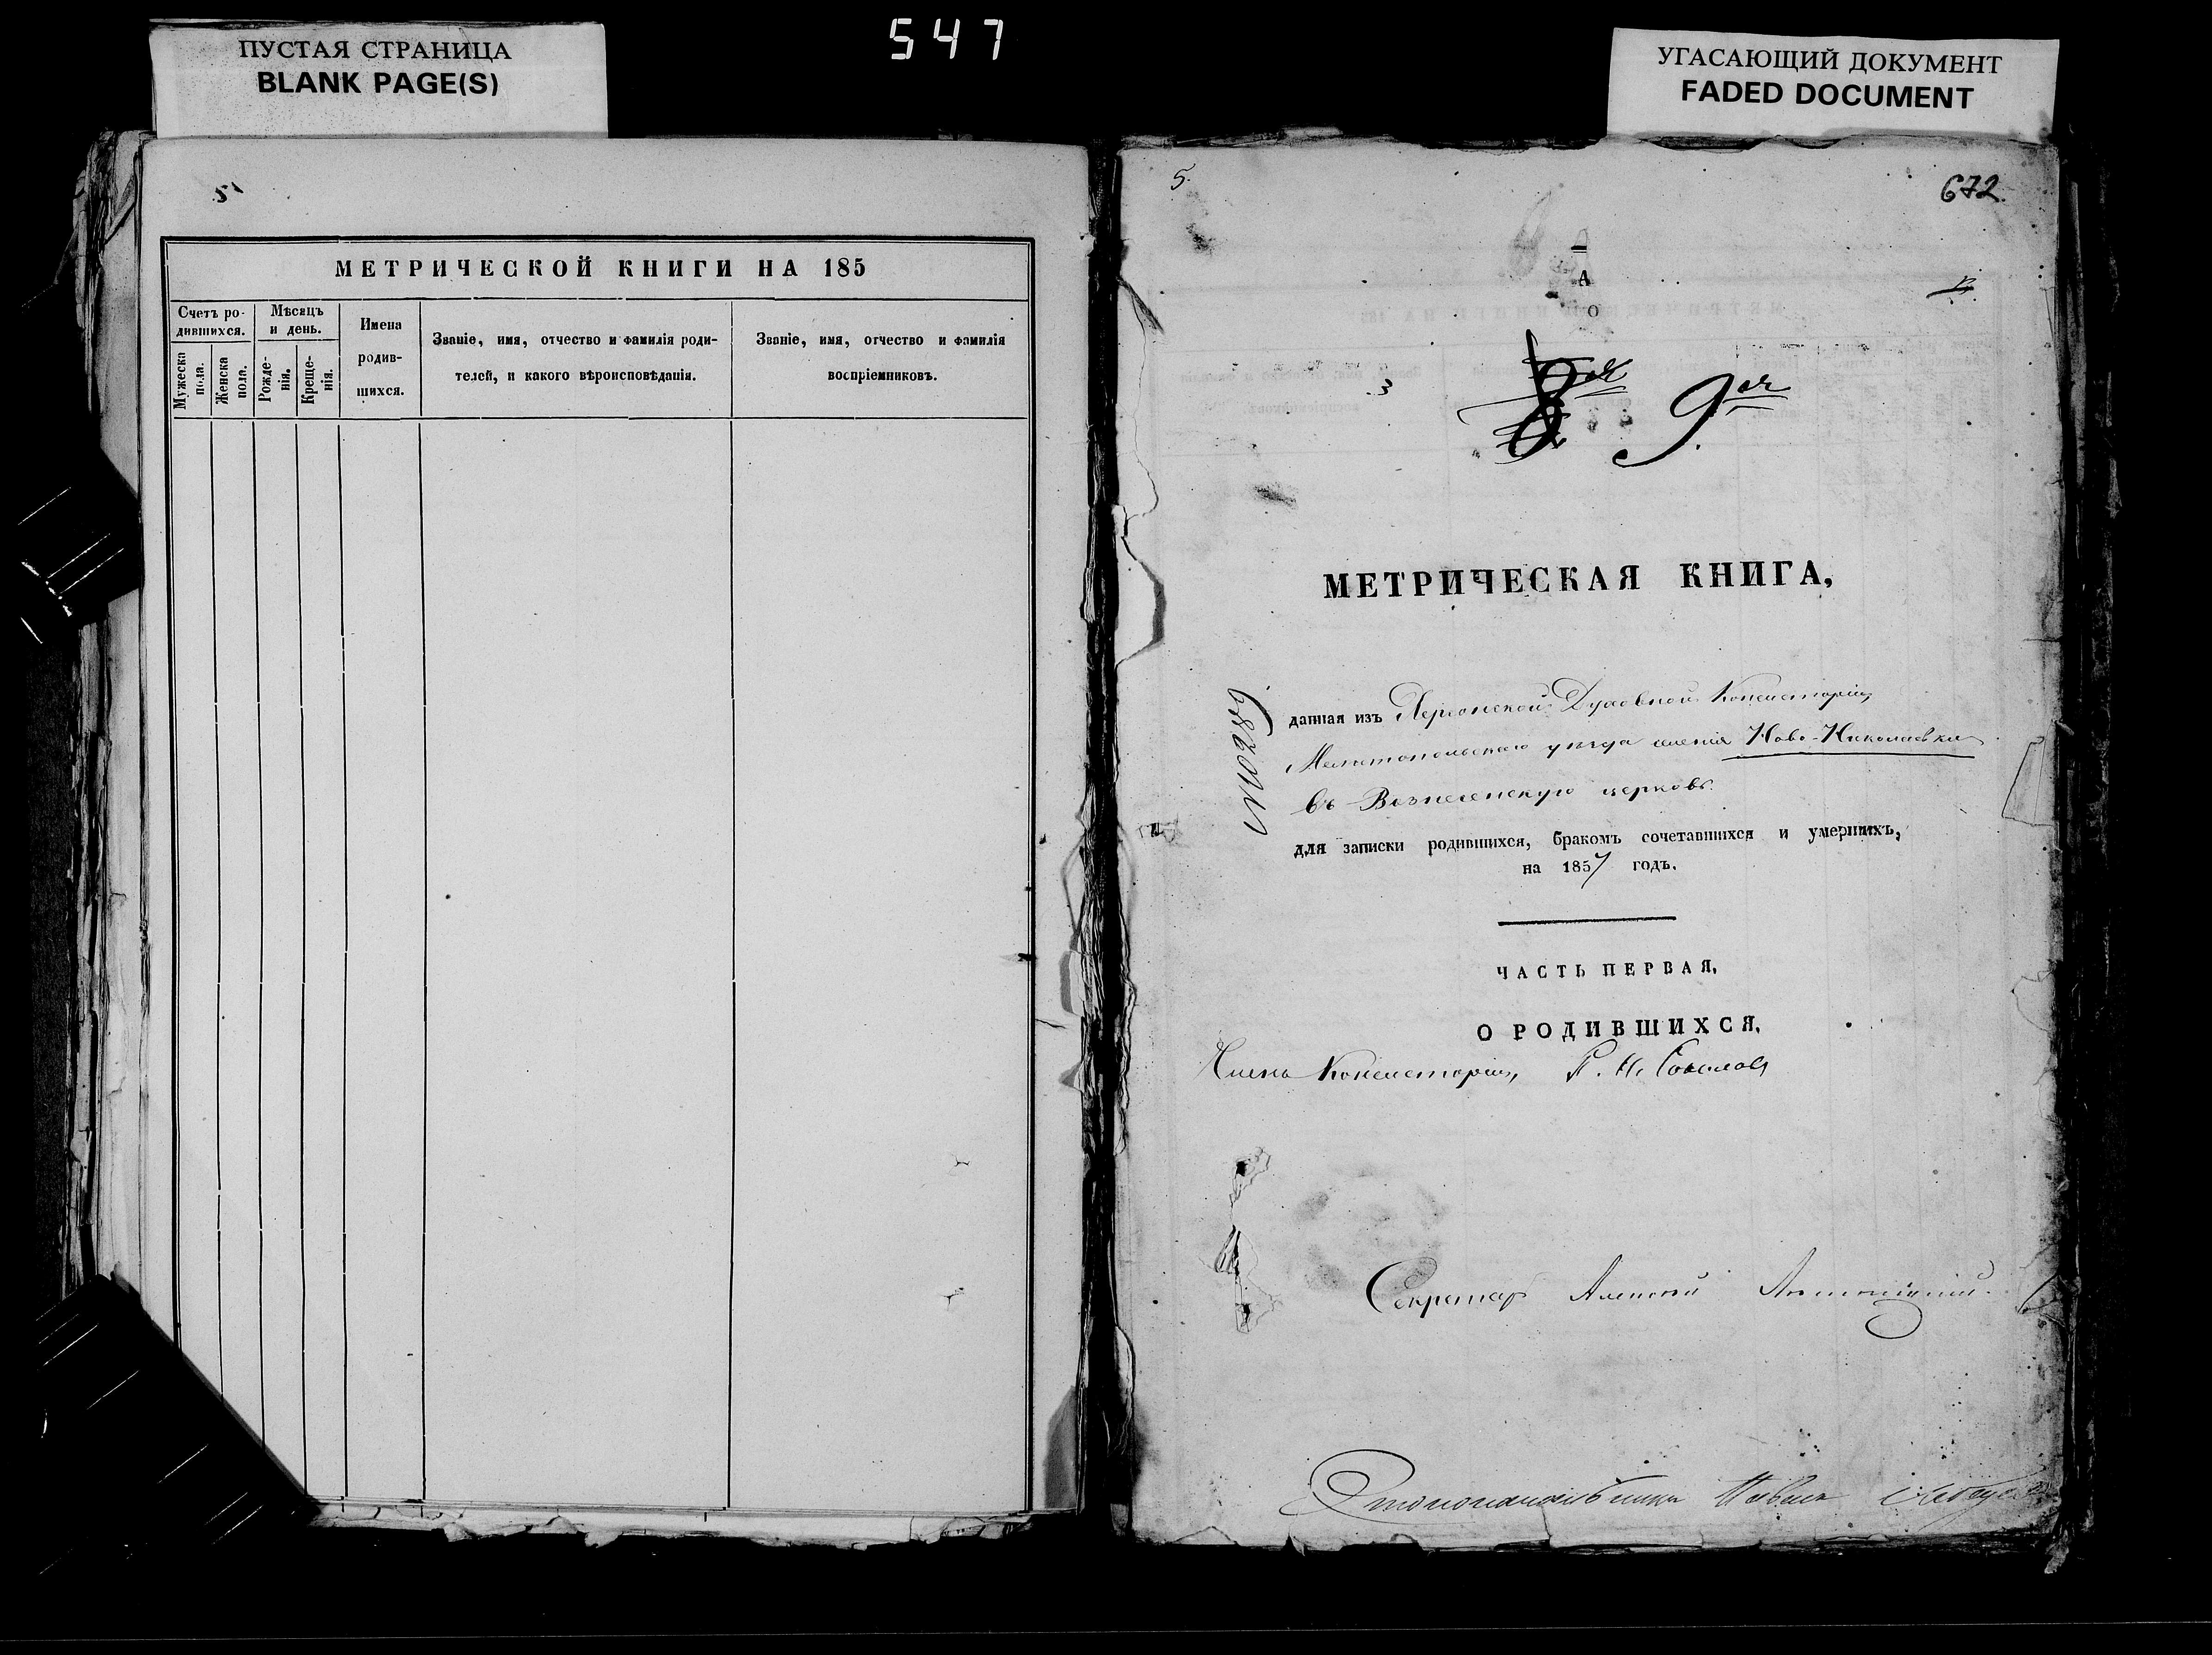 ПУСТАЯ СТРАНИЦА
BLANK PAGE(S)
547
УГАСАЮЩИЙ ДОКУМЕНТ
FADED DOCUMENT
5
МЕТРИЧЕСКОЙ КНИГИ НА 185
Счетъ ро-
дившихся.
Мужеска пола.
Женска пола.
Мѣсяцъ
и день.
Рожде-
нія.
Креще-
нія.
Имена
родив-
шихся.
Званіе, имя, отчество и фамилія роди-
телей, и какого вѣроисповѣданія.
Званіе, имя, отчество и фамилія
воспріемниковъ.
5.
672.
А
О
9ая
МЕТРИЧЕСКАЯ КНИГА,
№10289
данная изъ Херсонской Духовной Консисторіи,
Мелитопольскаго уѣзда селенія Ново-Николаевки
въ Вознесенскую церковь.
для записки родившихся, бракомъ сочетавшихся и умершихъ,
на 1857 годъ.
ЧАСТЬ ПЕРВАЯ,
О РОДИВШИХСЯ.
Членъ Консисторіи,
Секретарь Алексѣй
Столоначальникъ